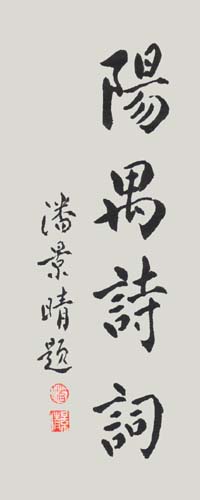 陽禺詩詞
潘景晴題